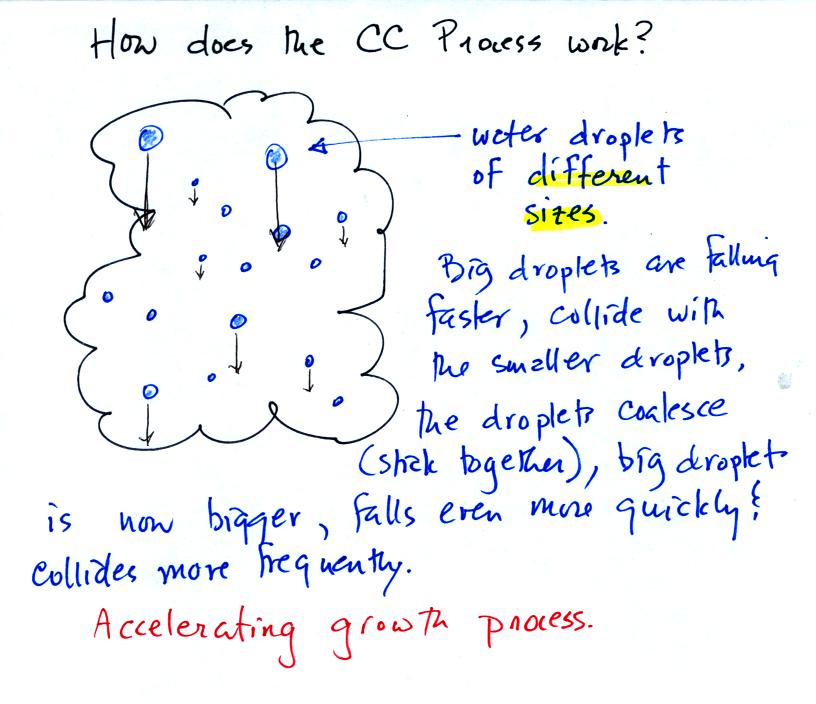 How does the CC Process work?
water droplets
of different
sizes.
Big droplets are falling
faster, collide with
the smaller droplets,
the droplets coalesce
(stick together), big droplet
is now bigger, falls even more quickly &
collides more frequently.
Accelerating growth process.